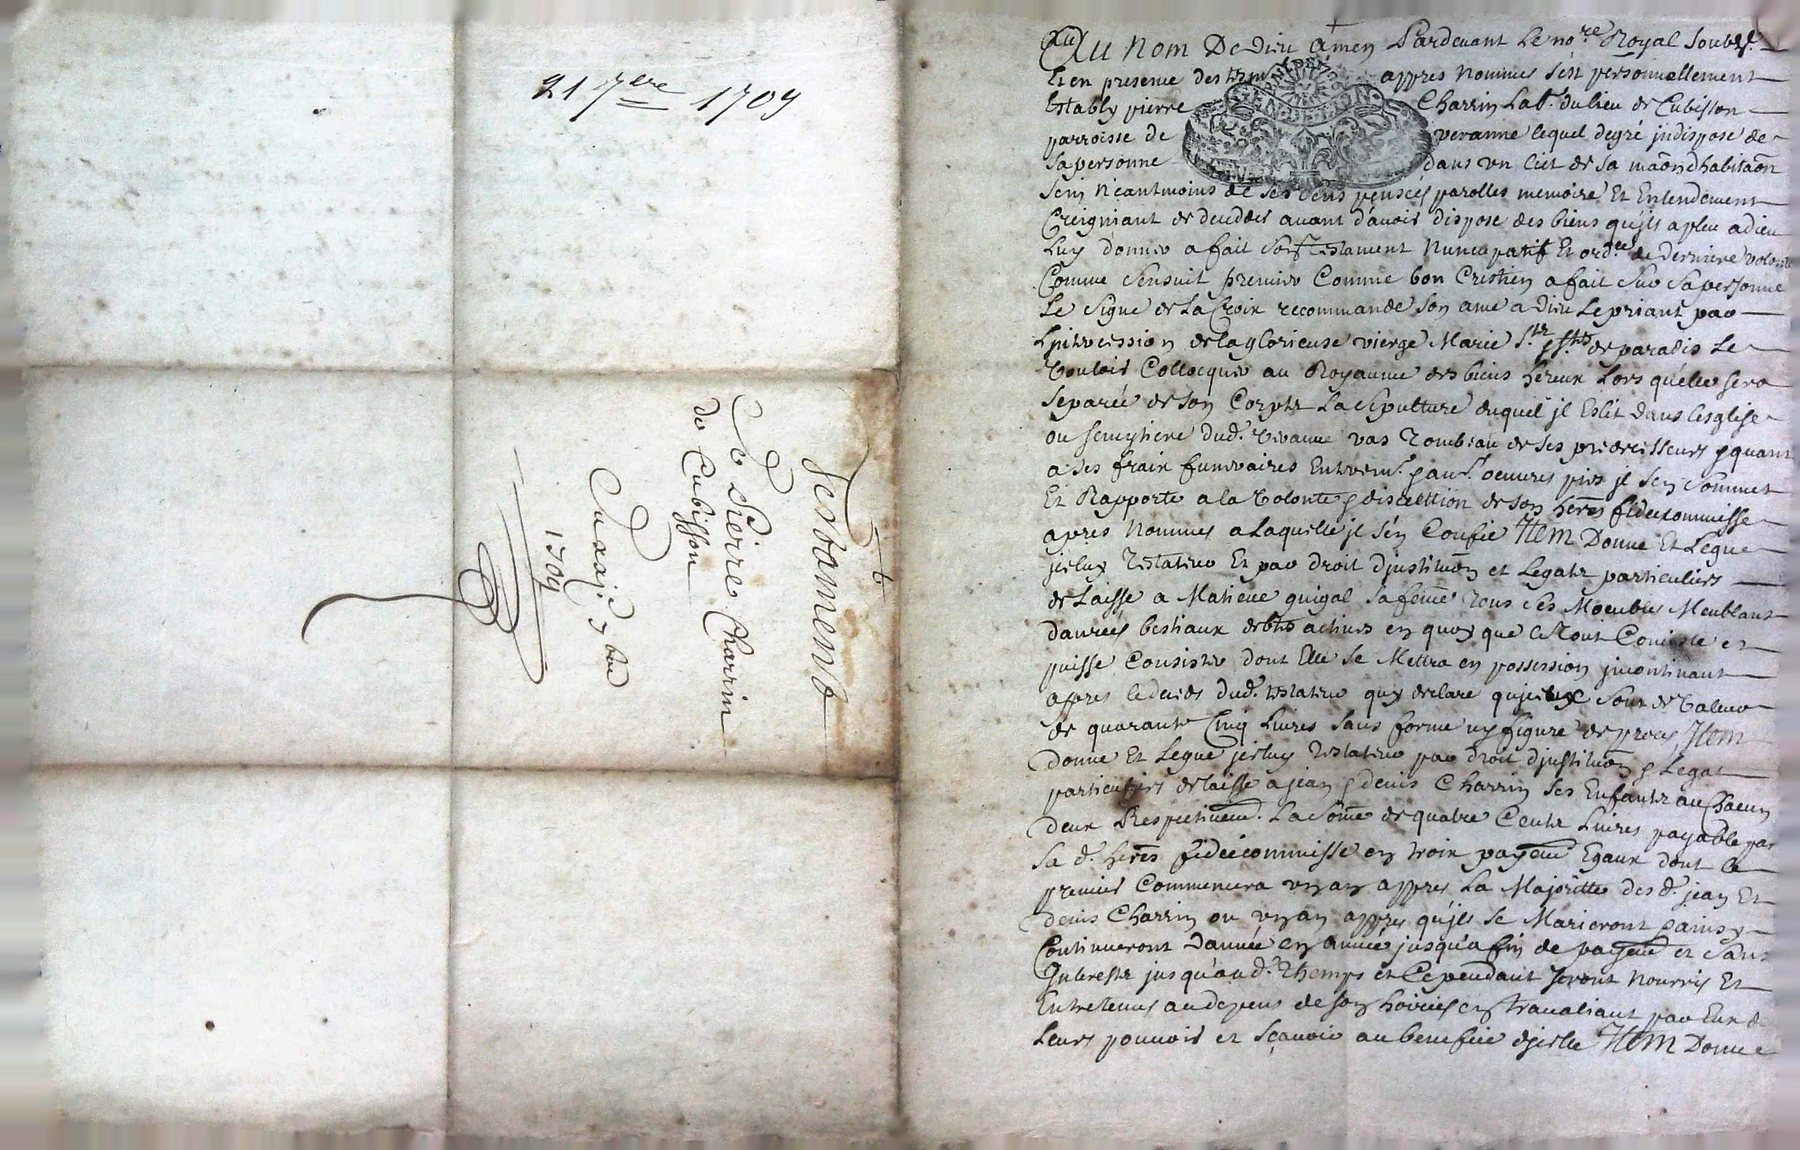 21 7bre 1709
Testament
De Pierre Charrin
de Cubisson
1709
Au Nom De dieu Amen Pardevant Le nore Royal soubzé.
Et en presence des appres nommes sest personnellement
Estably pierre Charrin Labr. du lieu de Cubisson
parroisse de veranne lequel degré jndispose de
sa personne dans un lict de sa maõn d'habitaõn
sein néantmoins de ses sens pensees parolles memoire Et Entendement
Creigniant de decedder avant d'avoir dispose des biens quils a pleu a dieu
Luy donner a fait son testament Nuncupatif Et ordce de derniere volonte
Comme sensuit premier Comme bon Crestien a fait sur sa personne
Le signe de La Croix recommandé son ame a Dieu Le priant par
Lintercession de la glorieuse vierge Marie Sts et Stes de paradis Le
vouloir Collocquer au Royaume des biens hereux Lors qu'elle sera
separée de son Corptz La sepulture duquel jl Eslit dans lesglise
ou semeytiere dud. veranne vas Tombeau de ses predecesseurs et quant
a ses fraix funeraires œuvres pies jl sen soumet
Et Rapporte a la volonte et discrettion de son heres fideicommisse
apres nommes a laquelle jl sen Confie Item Donne Et Legue
jceluy Testateur Et par droit djnstituõn et Legatz particuliers
delaisse a Matieue guigal sa feme Tous ses Moeubles Meublant
danrees bestiaux debtes actives en quoy que le Tout Consiste et
puisse Consister dont Elle se Mettra en possession jncontinant
appres le deceds dud. testateur quy declare qujceux sont de valeur
de quarante Cinq Livres sans forme ny figure de proces Item
donne Et Legue jceluy Testateur par droit djnstituõn et Legat
particuliers delaisse a jean et denis Charrin ses Enfantz au Chacun
deux Respectivemt. La some de quatre Centz Livres payable par
sa d. heres fideicommisse en troix payemt Egaux dont le
premier Commencera un an appres La Majoritte desd. jean Et
denis Charrin ou un an appres qujls se Marieront et ainsy
Continueront dannée en année jusqu'a fin de payemt et sans
Jnteretz jusqu'aud. Themps et Cependant seront nourris Et
Entretenus au depens de son hoirie en travaliant par Eux de
Leurs pouvoir et sçavoir au benefice djcelle Item Donne